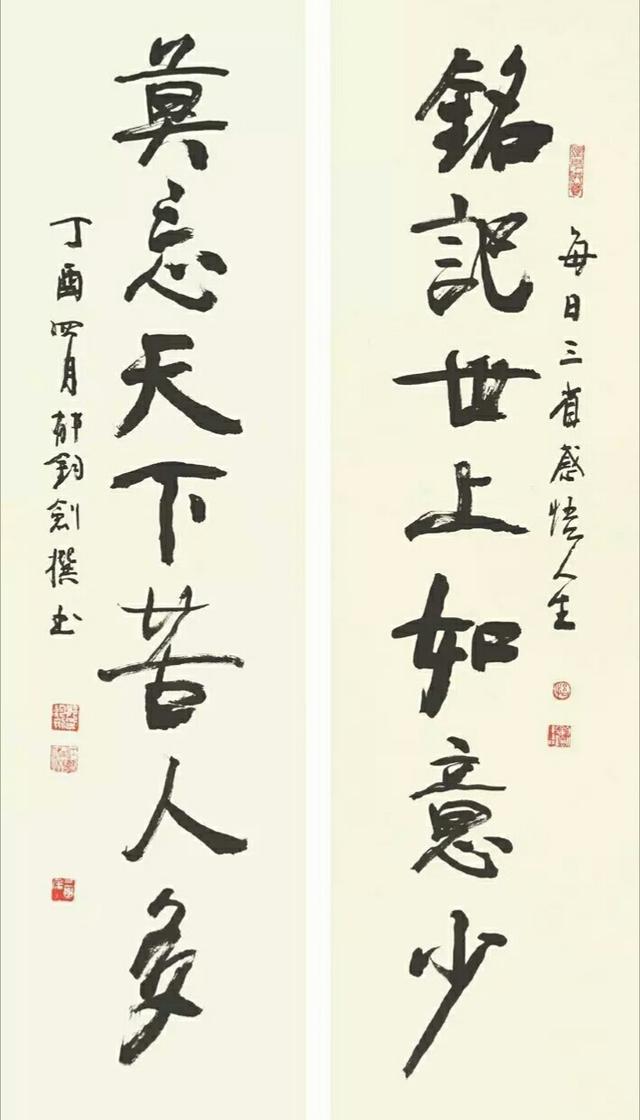 每日三省感悟人生
銘記世上如意少
莫忘天下苦人多
丁酉四月郁鈞劍撰書